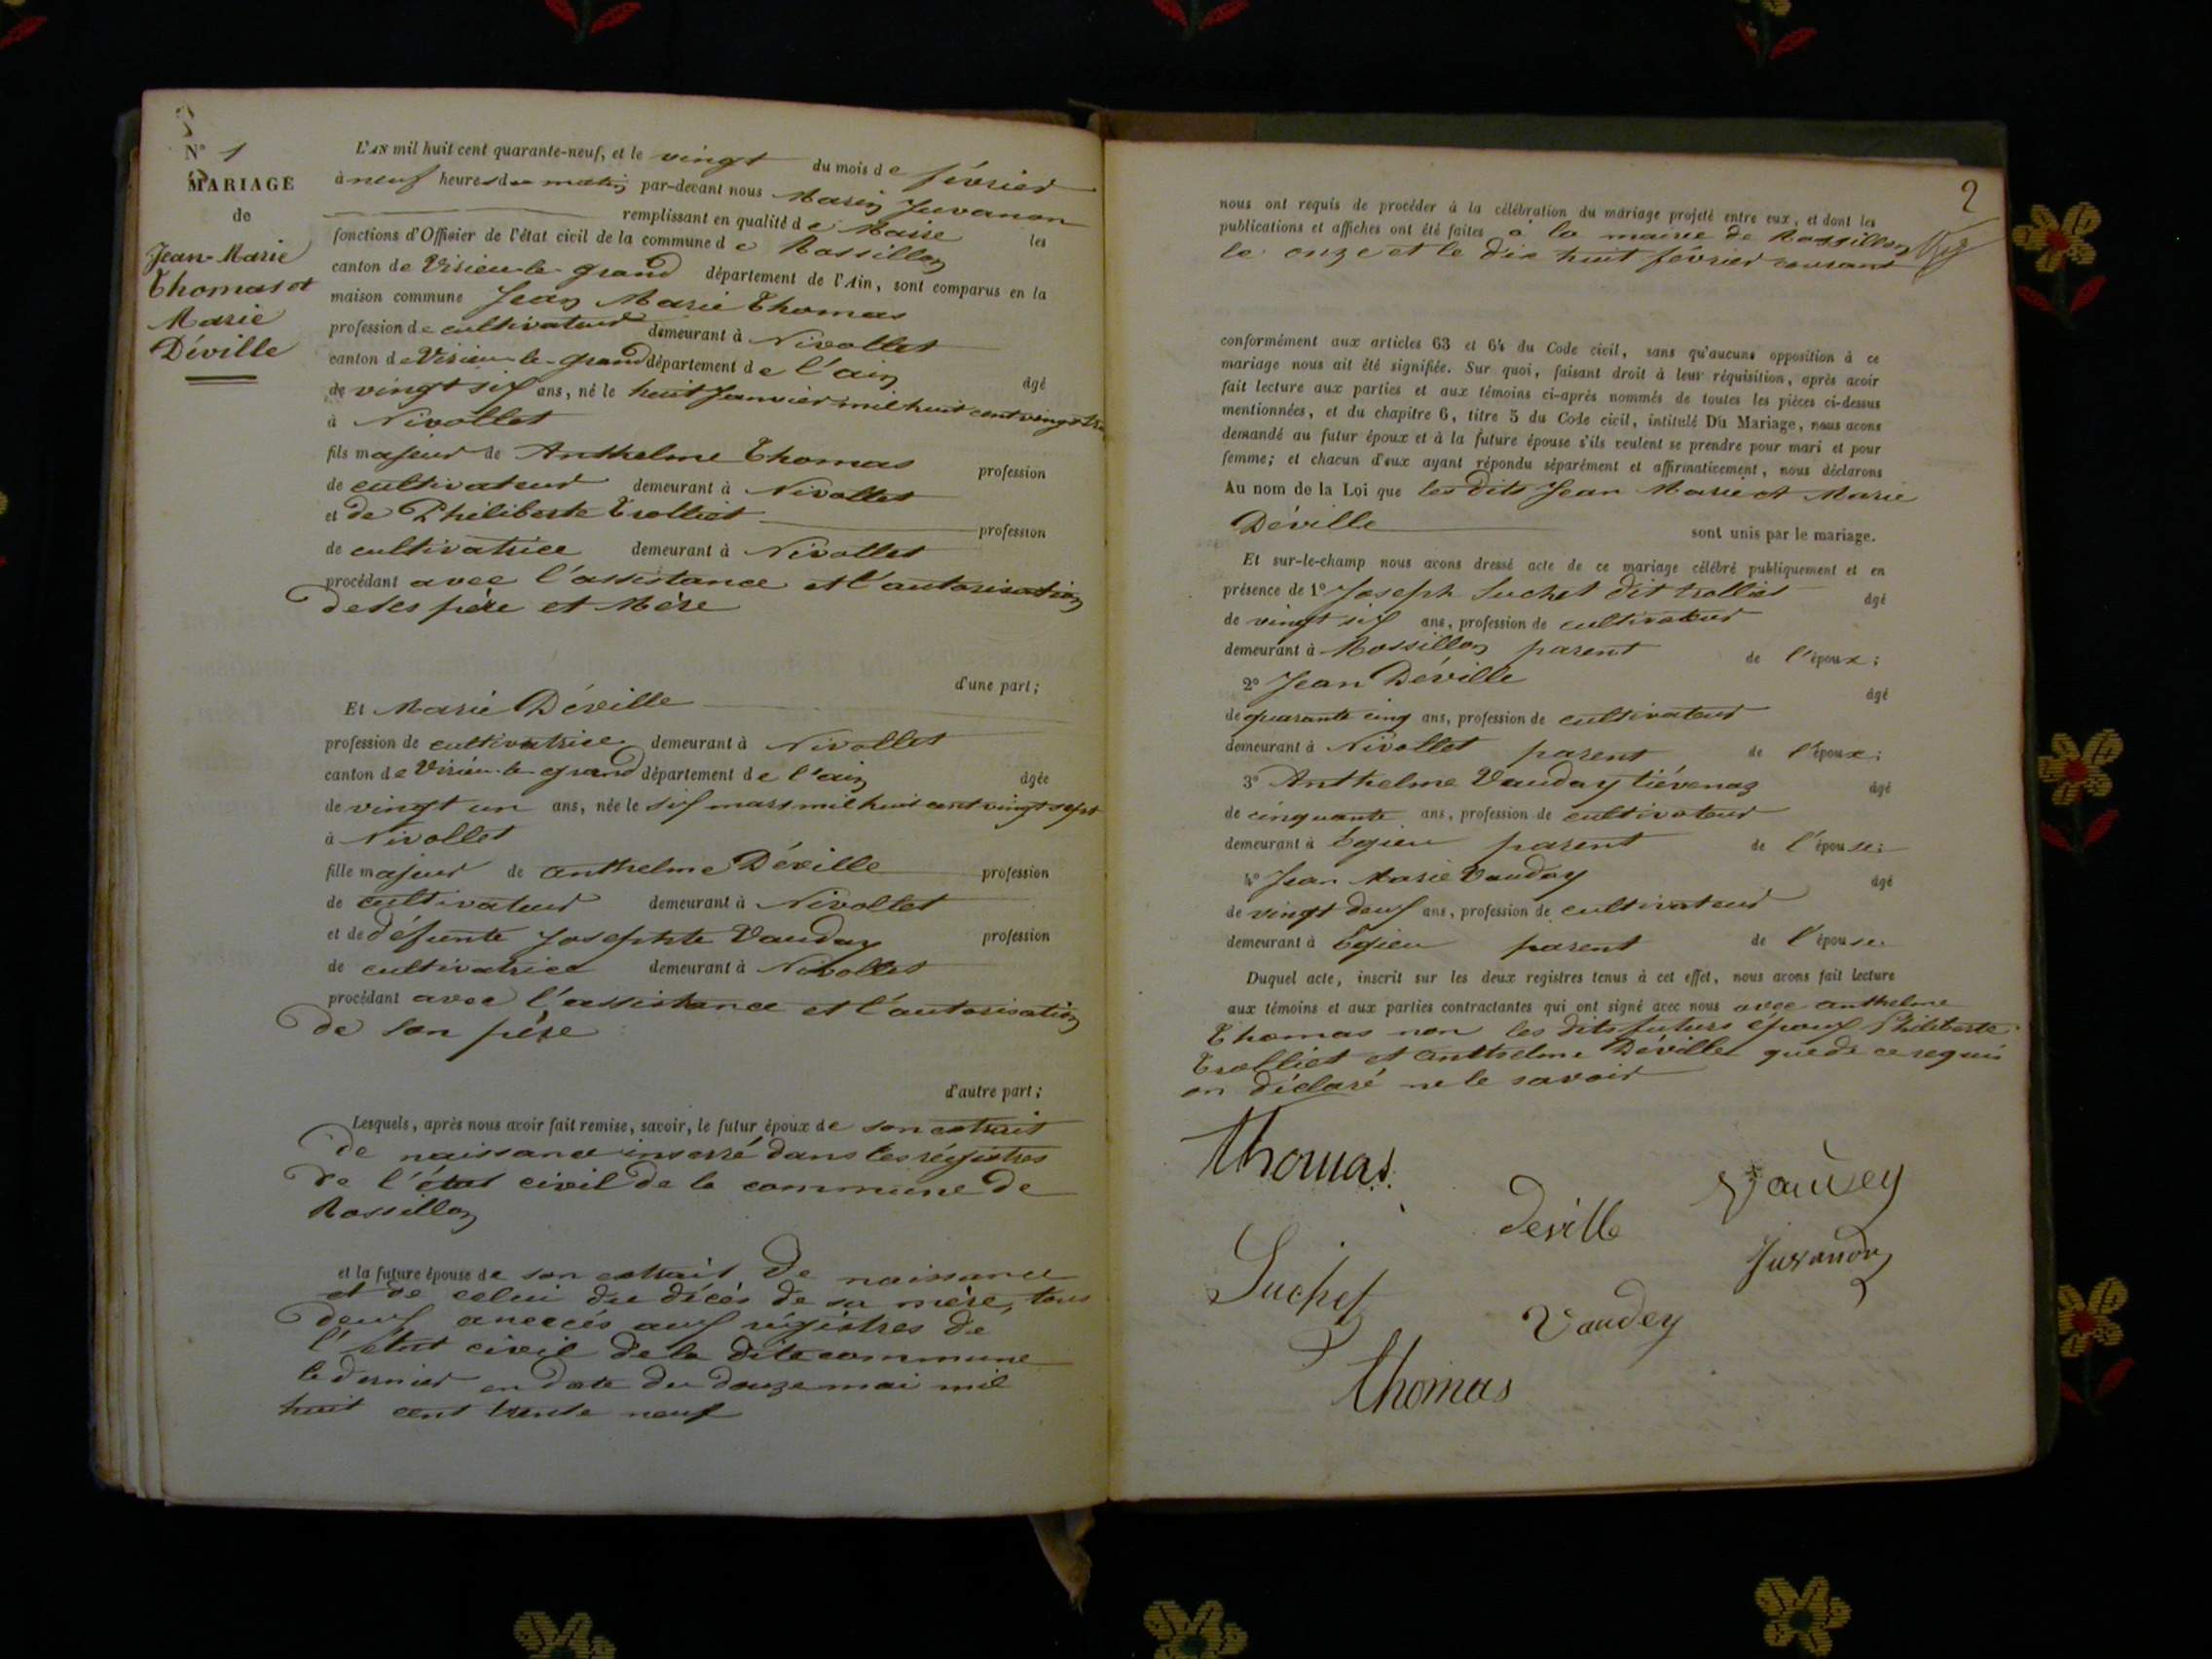 N° 1
MARIAGE
de
Jean-Marie
Thomas et
Marie
Déville
L'AN mil huit cent quarante-neuf, et le vingt du mois de février
à neuf heures du matin par-devant nous Marin Juvanon
remplissant en qualité de Maire les
fonctions d'Officier de l'état civil de la commune de Rossillon
canton de Virieu-le-grand département de l'Ain, sont comparus en la
maison commune Jean Marie Thomas
profession de cultivateur demeurant à Nivollet
canton de Virieu-le-grand département de l'ain
âgé
de vingt six ans, né le huit Janvier mil huit cent vingt
à Nivollet
fils majeur de Anthelme Thomas profession
de cultivateur demeurant à Nivollet
et de Philiberte Trolliet profession
de cultivatrice demeurant à Nivollet
procédant avec l'assistance et l'autorisation
de ses père et Mère
d'une part;
Et Marie Déville
profession de cultivatrice demeurant à Nivollet
canton de Virieu-le-grand département de l'ain âgée
de vingt un ans, née le six mars mil huit cent vingt sept
à Nivollet
fille majeur de anthelme Déville profession
de cultivateur demeurant à Nivollet
et de défunte Josephte Vauday profession
de cultivatrice demeurant à Nivollet
procédant avec l'assistance et l'autorisation
de son père
d'autre part;
Lesquels, après nous avoir fait remise, savoir, le futur époux de son extrait
de naissance inserré dans les régistres
de l'état civil de la commune de
Rossillon
et la future épouse de son extrait de naissance
et de celui du décès de sa mère, tous
deux anexcés aux régistres de
l'état civil de la dite commune
le dernier en date du douze mai mil
huit cent trente neuf
2
nous ont requis de procéder à la célébration du mariage projeté entre eux, et dont les
publications et affiches ont été faites à la mairie de Rossillon
le onze et le dix huit février courant
conformément aux articles 63 et 64 du Code civil, sans qu'aucune opposition à ce
mariage nous ait été signifiée. Sur quoi, faisant droit à leur réquisition, après avoir
fait lecture aux parties et aux témoins ci-après nommés de toutes les pièces ci-dessus
mentionnées, et du chapitre 6, titre 5 du Code civil, intitulé Du Mariage, nous avons
demandé au futur époux et à la future épouse s'ils veulent se prendre pour mari et pour
femme; et chacun d'eux ayant répondu séparément et affirmativement, nous déclarons
Au nom de la Loi que les dits Jean Marie et Marie
Déville sont unis par le mariage.
Et sur-le-champ nous avons dressé acte de ce mariage célébré publiquement et en
présence de 1° Joseph Suchet dit trolliet âgé
de vingt six ans, profession de cultivateur
demeurant à Rossillon parent de l'époux;
2° Jean Déville âgé
de quarante cinq ans, profession de cultivateur
demeurant à Nivollet parent de l'époux;
3° Anthelme Vauday tiévenaz âgé
de cinquante ans, profession de cultivateur
demeurant à Egieu parent de l'épouse;
4° Jean Marie Vauday âgé
de vingt deux ans, profession de cultivateur
demeurant à Egieu parent de l'épouse.
Duquel acte, inscrit sur les deux registres tenus à cet effet, nous avons fait lecture
aux témoins et aux parties contractantes qui ont signé avec nous avec anthelme
Thomas non les dits futurs époux Philiberte
Trolliet et anthelme Déville que de ce requis
on déclaré ne le savoir
Thomas
deville
Vaudey
Suchet
Juvanon
Vaudey
Thomas